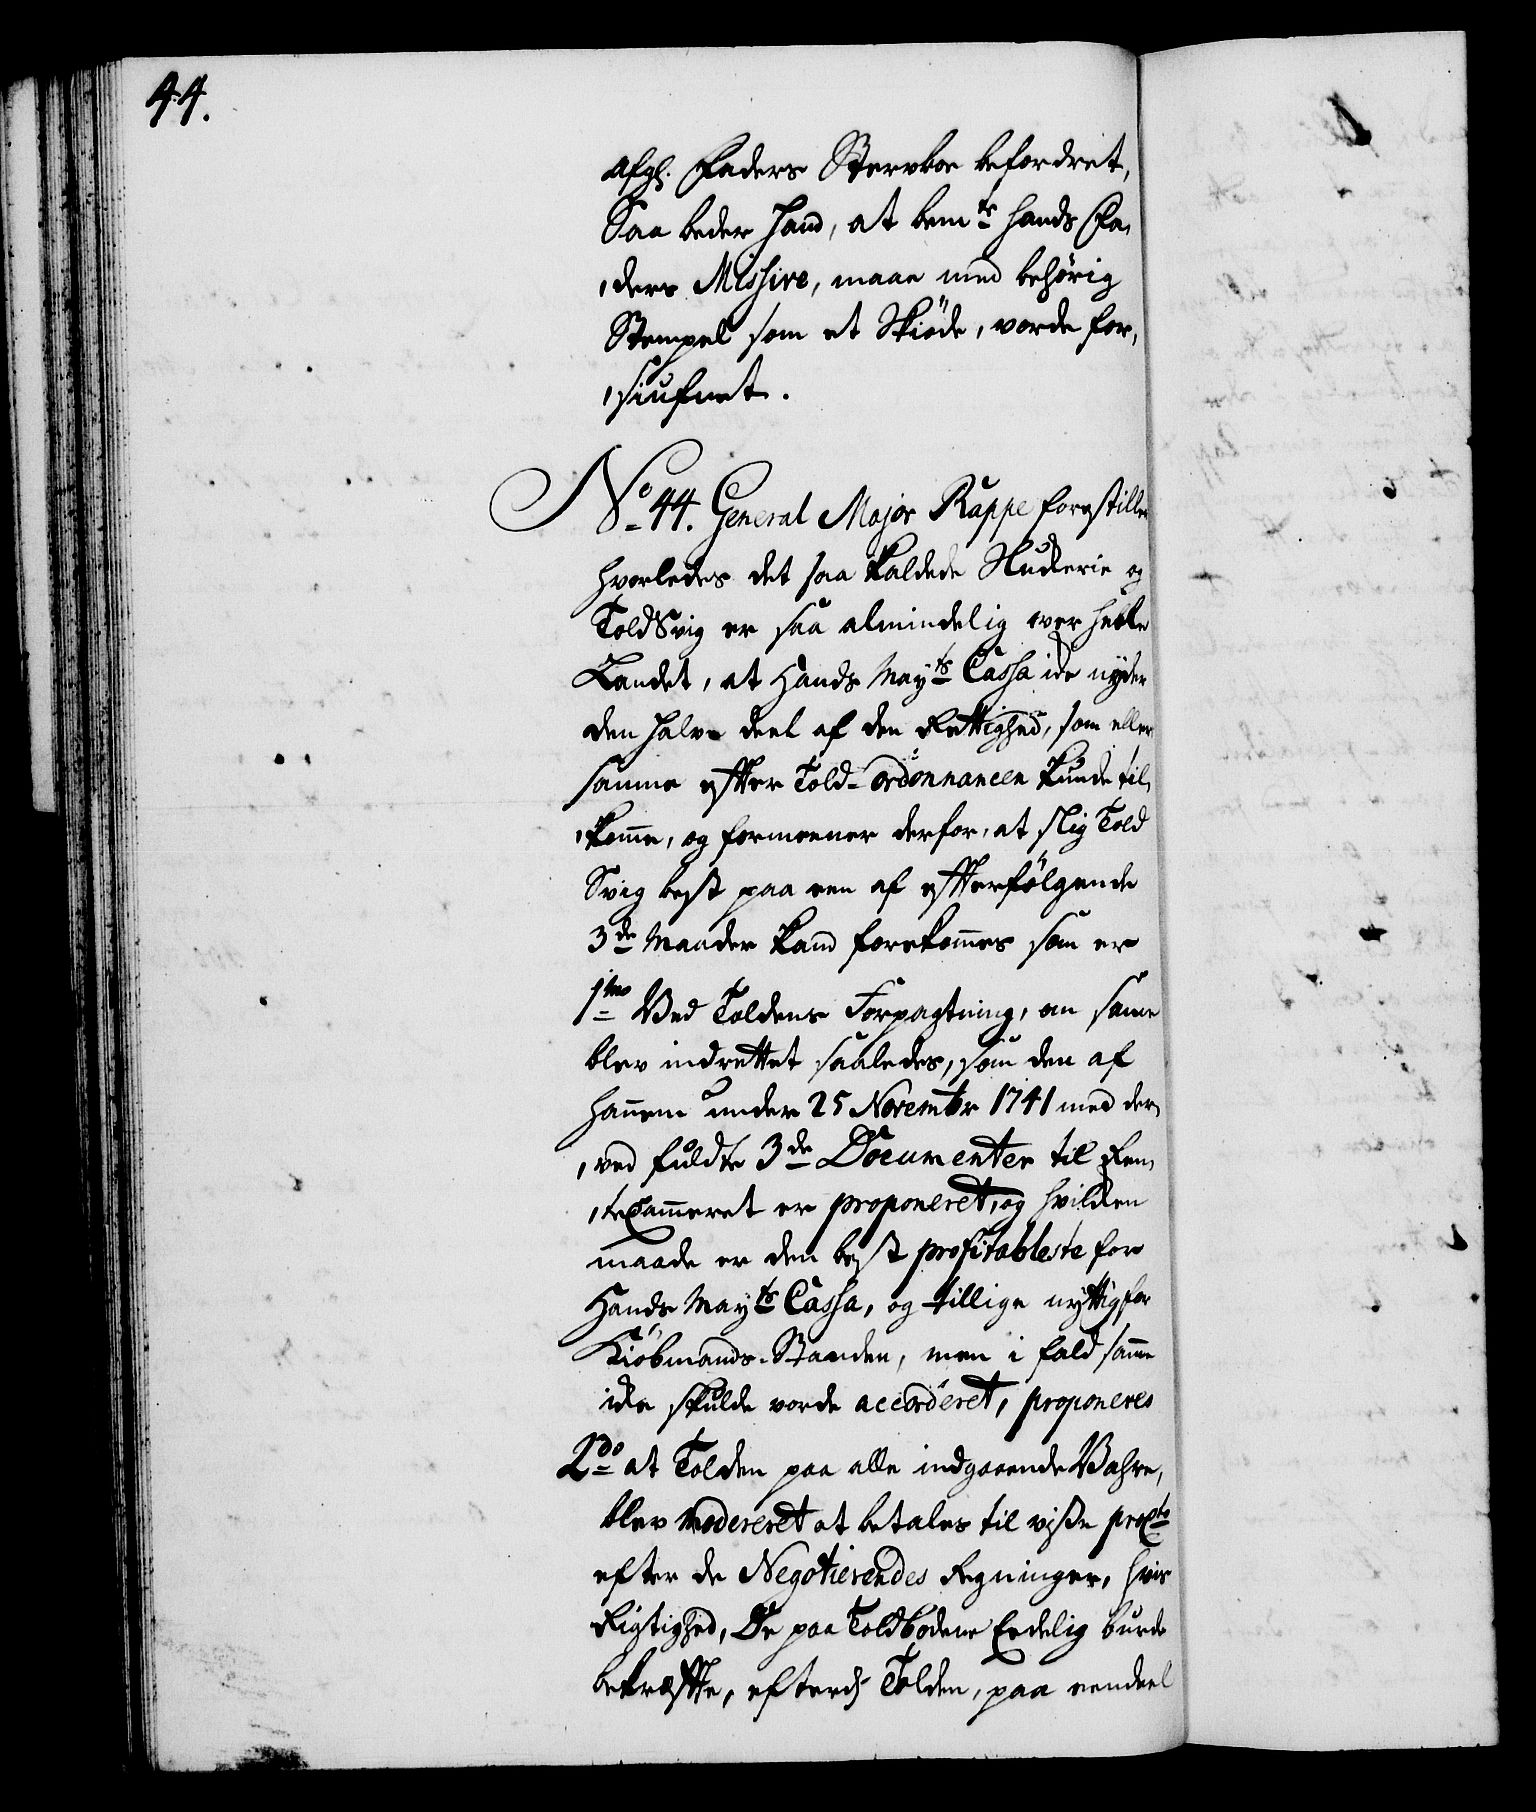 44.
afg. Faders Stervboe befordret,
Saa beder hand, at bemte hands Fa,
,ders Missive, maae med behörig
Stempel som et Skiöde, vorde for,
,siufnet.
No 44. General Major Rappe forestiller
hvorledes det saa kaldede Studerie og
ToldSvig er saa almindelig over heele
Landet, at Hands Mayts Cassa icke nyder
den halve deel af den Rettighed, som eller
samme efter Told-ordonnancen kunde til,
,komme, og formeener derfor, at slig Told
Svig best paa een af efterfölgende
3de Maader kand forekommes som er
1mo Ved Toldens Forpagtning, om samme
blev indrettet saaledes, som den af
hannem under 25 Novembr 1741 med der,
,ved fuldte 3de Documenter til Ren,
,teCammeret er proponeret, og hvilcken
maade er den best profitableste for
Hands Mayts Cassa, og tillige nyttig for
Kiöbmands-Standen, men i fald samme
icke skulde vorde accorderet, proponeres
2do at Tolden paa alle indgaaende Vahre,
blev modereret at betales til visse proCto
efter de Negotierendes Regninger, hvis
Rigtighed, De paa Toldboderne Eedelig burde
bekræfte, efterdj Tolden, paa eendeel